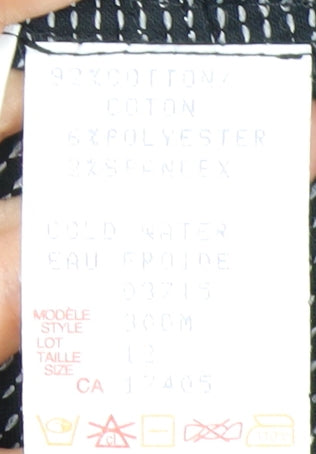 92%COTTON/
COTON
6%POLYESTER
2%SPANDEX
COLD WATER
EAU FROIDE
03715
MODÈLE
STYLE 300M
LOT
TAILLE 12
SIZE
CA 17405